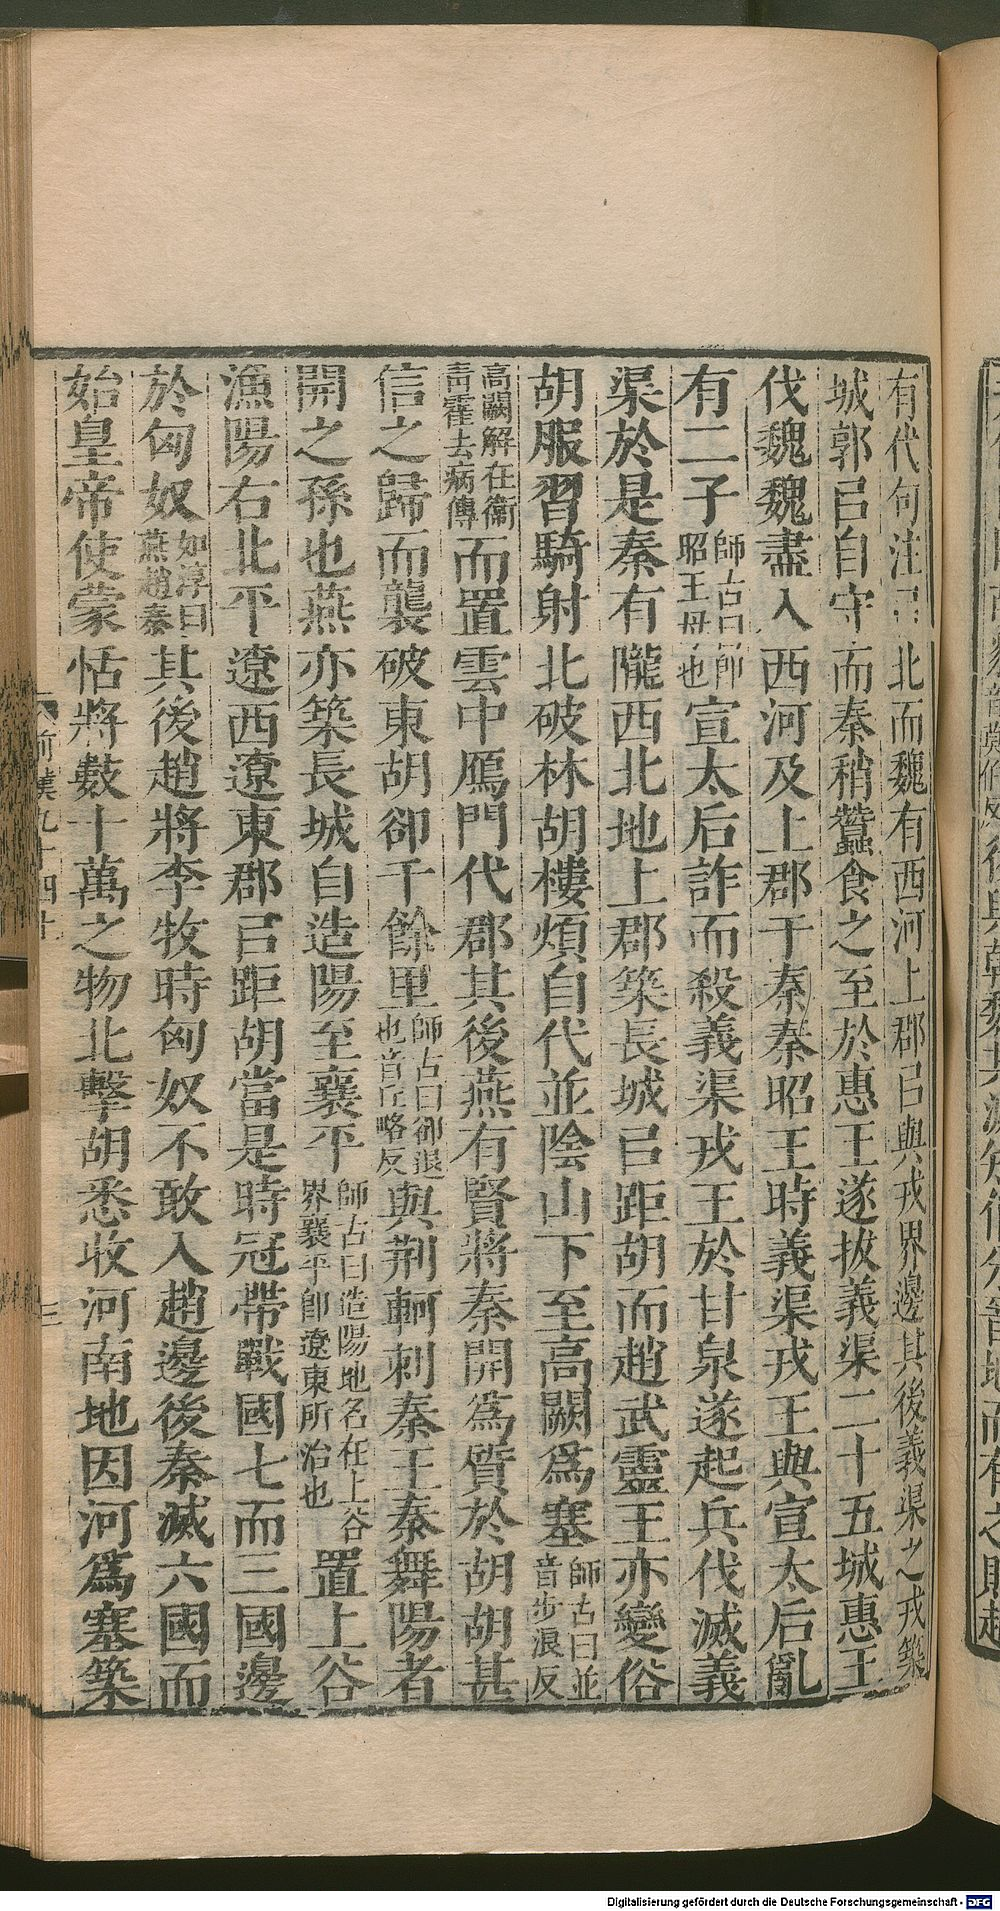 有代句注㠯北而魏有西河上郡㠯與戎界邊其後義渠之戎築
城郭㠯自守而秦稍蠶食之至於惠王遂拔義渠二十五城惠王
伐魏魏盡入西河及上郡于秦秦昭王時義渠戎王與宣太后亂
有二子師古曰即昭王母也宣太后詐而殺義渠戎王於甘泉遂起兵伐滅義
渠於是秦有隴西北地上郡築長城㠯距胡而趙武靈王亦變俗
胡服習騎射北破林胡樓煩自代並陰山下至高闕爲塞師古曰並音步浪反
高闕解在衞青霍去病傳而置雲中鴈門代郡其後燕有賢將秦開爲質於胡胡甚
信之歸而襲破東胡卻千餘里師古曰卻退也音丘略反與荆軻刺秦王秦舞陽者
開之孫也燕亦築長城自造陽至襄平師古曰造陽地名在上谷界襄平即遼東所治也置上谷
漁陽右北平遼西遼東郡㠯距胡當是時冠帶戰國七而三國邊
於匈奴如淳曰燕趙秦其後趙將李牧時匈奴不敢入趙邊後秦滅六國而
始皇帝使蒙恬將數十萬之物北擊胡悉收河南地因河爲塞築
前漢九十四上
三
Digitalisierung gefördert durch die Deutsche Forschungsgemeinschaft - DFG